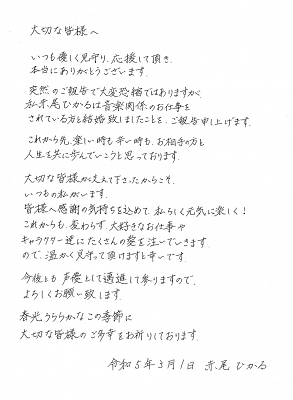 大切な皆様へ
いつも優しく見守り、応援して頂き、
本当にありがとうございます。
突然のご報告で大変恐縮ではありますが、
私、赤尾ひかるは音楽関係のお仕事を
されている方と結婚致しましたことを、ご報告申し上げます。
これから先、楽しい時も辛い時も、お相手の方と
人生を共に歩んでいこうと思っております。
大切な皆様が支えて下さったからこそ、
いつもの私がいます。
皆様へ感謝の気持ちを込めて、私らしく元気に楽しく！
これからも、変わらず、大好きなお仕事や
キャラクター達にたくさんの愛を注いでいきます
ので、温かく見守って頂けますと幸いです。
今後とも、声優として邁進して参りますので、
よろしくお願い致します。
春光うららかなこの季節に
大切な皆様のご多幸をお祈りしております。
令和5年3月1日 赤尾ひかる